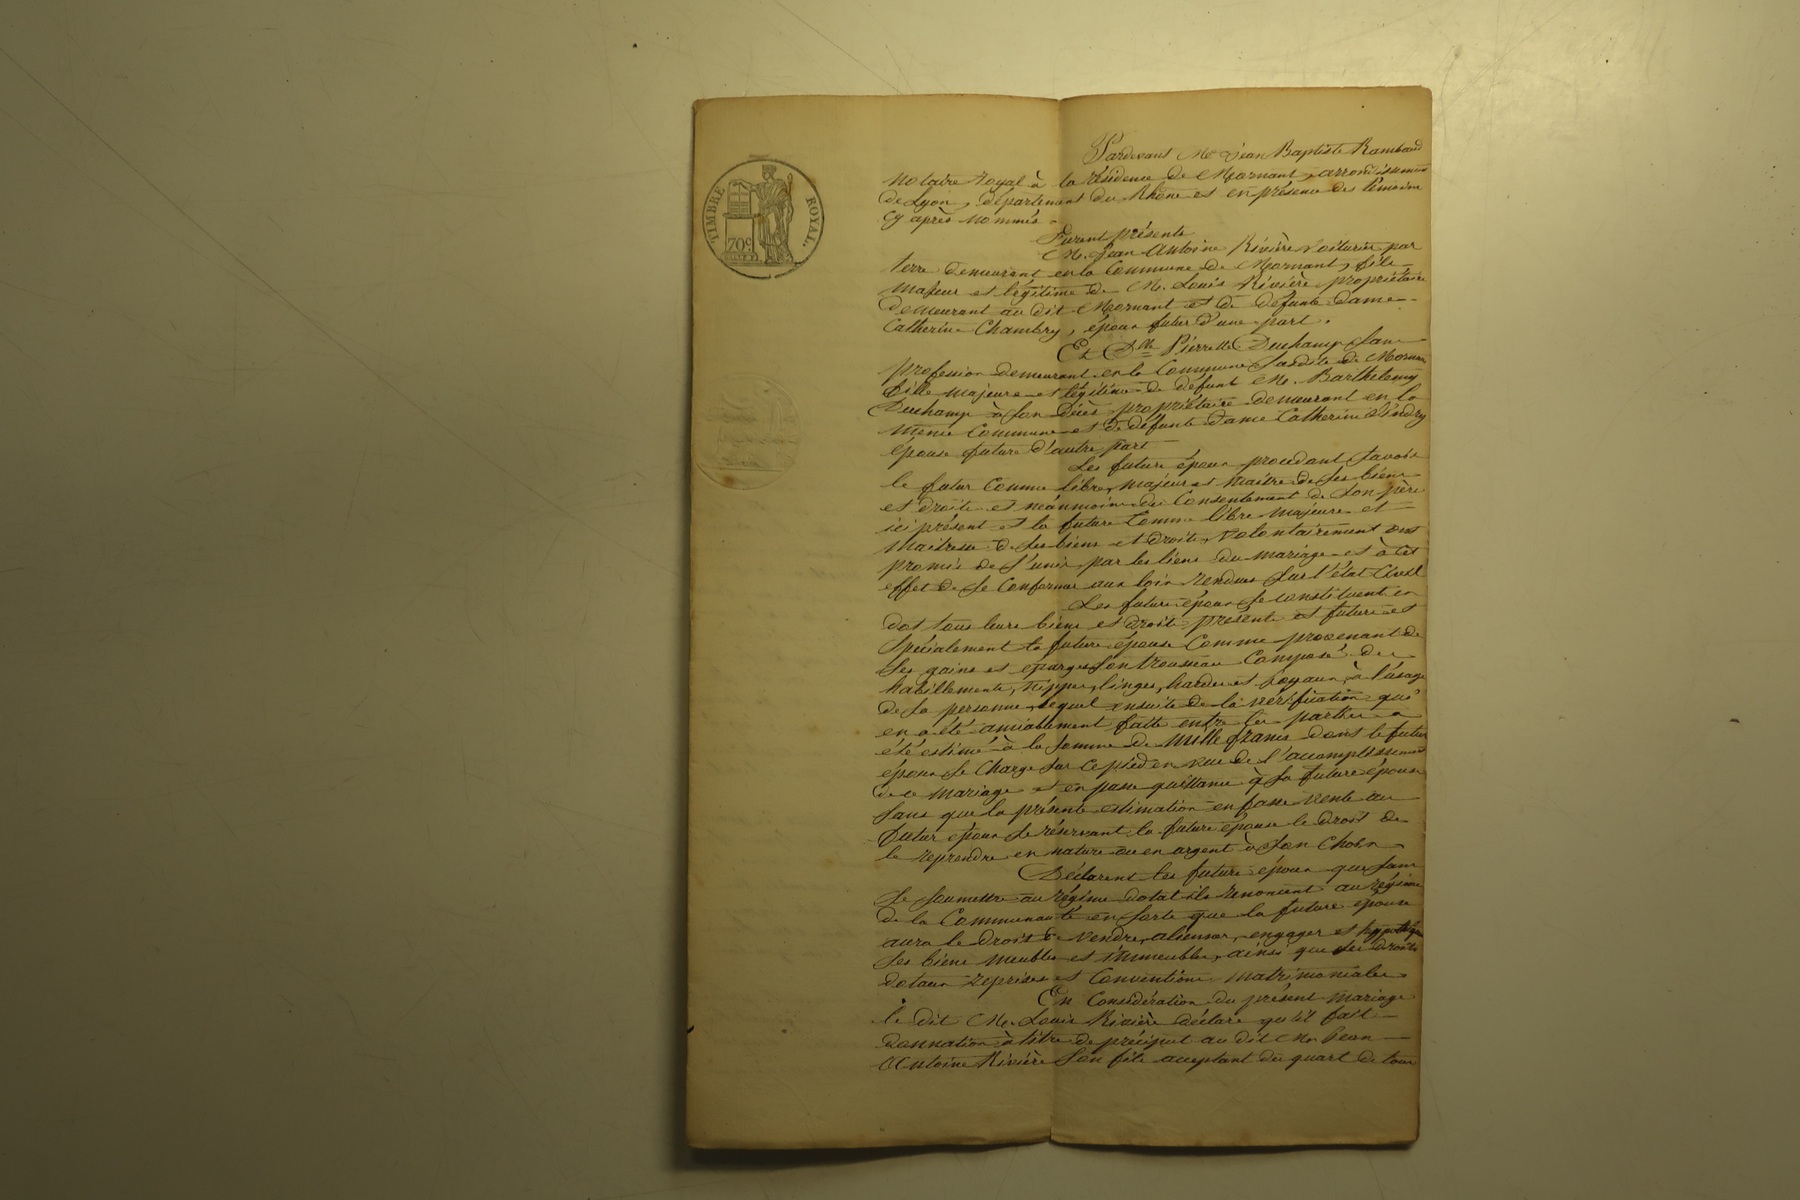 TIMBRE ROYAL
70c
Pardevant Me Jean Baptiste Rambaud
Notaire royal à la résidence de Mornant, arrondissement
de Lyon, département du Rhône et en présence des témoins
cy après nommés
Furent présents
M. Jean Antoine Rivière voiturier par
terre demeurant en la Commune de Mornant, fils
majeur et légitime de M. Louis Rivière propriétaire
demeurant au dit Mornant et de défunte dame
Catherine Chambry, époux futur d'une part.
Et Dlle Pierrette Duchamp sans
profession demeurant en la Commune susdite de Mornant
fille majeure et légitime de défunt M. Barthelemy
Duchamp à son décès propriétaire demeurant en la
même Commune et de défunte Dame Catherine
épouse future d'autre part
Les futurs époux procédant savoir
le futur comme libre, majeur et maître de ses biens
et droits et néanmoins du Consentement de son père
ici présent et la future comme libre majeure et
maîtresse de ses biens et droits, volontairement ont
promis de s'unir par les liens du mariage et à cet
effet de se conformer aux loix rendues sur l'état Civil
Les futurs époux se constituent en
dot tous leurs biens et droits présents et futurs et
spécialement la future épouse comme provenant de
ses gains et épargnes son trousseau composé de
habillements, nippes, linges, hardes et joyaux, à l'usage
de sa personne, lequel ensuite de la vérification qui
en a été amiablement faite entre les parties a
été estimé à la somme de mille francs dont le futur
époux se charge sur ce pied en vue de l'accomplissement
de ce mariage et en passe quittance à sa future épouse
sans que la présente estimation en fasse vente au
futur époux se réservant la future épouse le droit de
le reprendre en nature ou en argent à son choix
Déclarent les futurs époux que sans
se soumettre au régime dotal ils renoncent au régime
de la Communauté en sorte que la future épouse
aura le droit de vendre, aliéner, engager et
ses biens meubles et immeubles, ainsi que ses droits
dotaux reprises et conventions matrimoniales
En Considération du présent mariage
le dit M. Louis Rivière déclare qu'il fait
donnation à titre de préciput au dit M. Jean
Antoine Rivière son fils acceptant du quart de tous